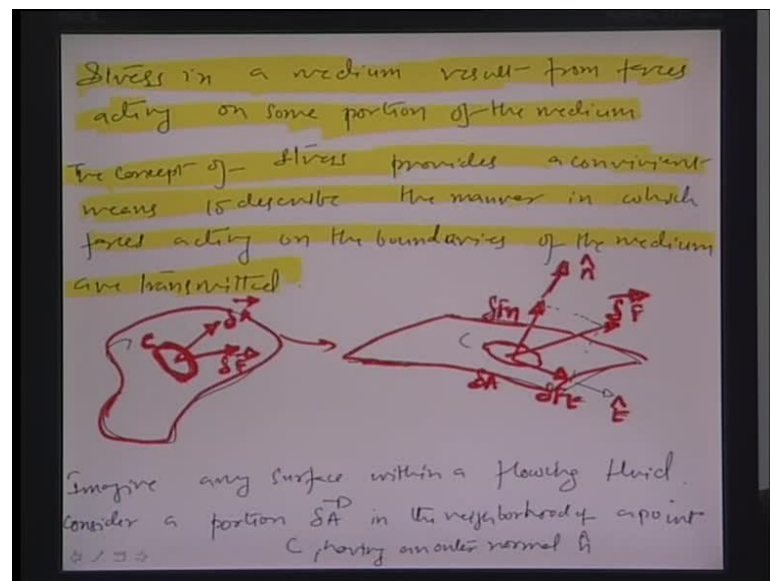 Stress in a medium result from forces
acting on some portion of the medium
The concept of stress provides a convinient
means to describe the manner in which
forces acting on the boundaries of the medium
are transmitted.
n̂
δFn
δF⃗
δA⃗
C
δF⃗
C
δA
δFt
t̂
Imagine any surface within a flowing fluid.
Consider a portion δA⃗ in the neighborhood of a point
C, having an outer normal n̂